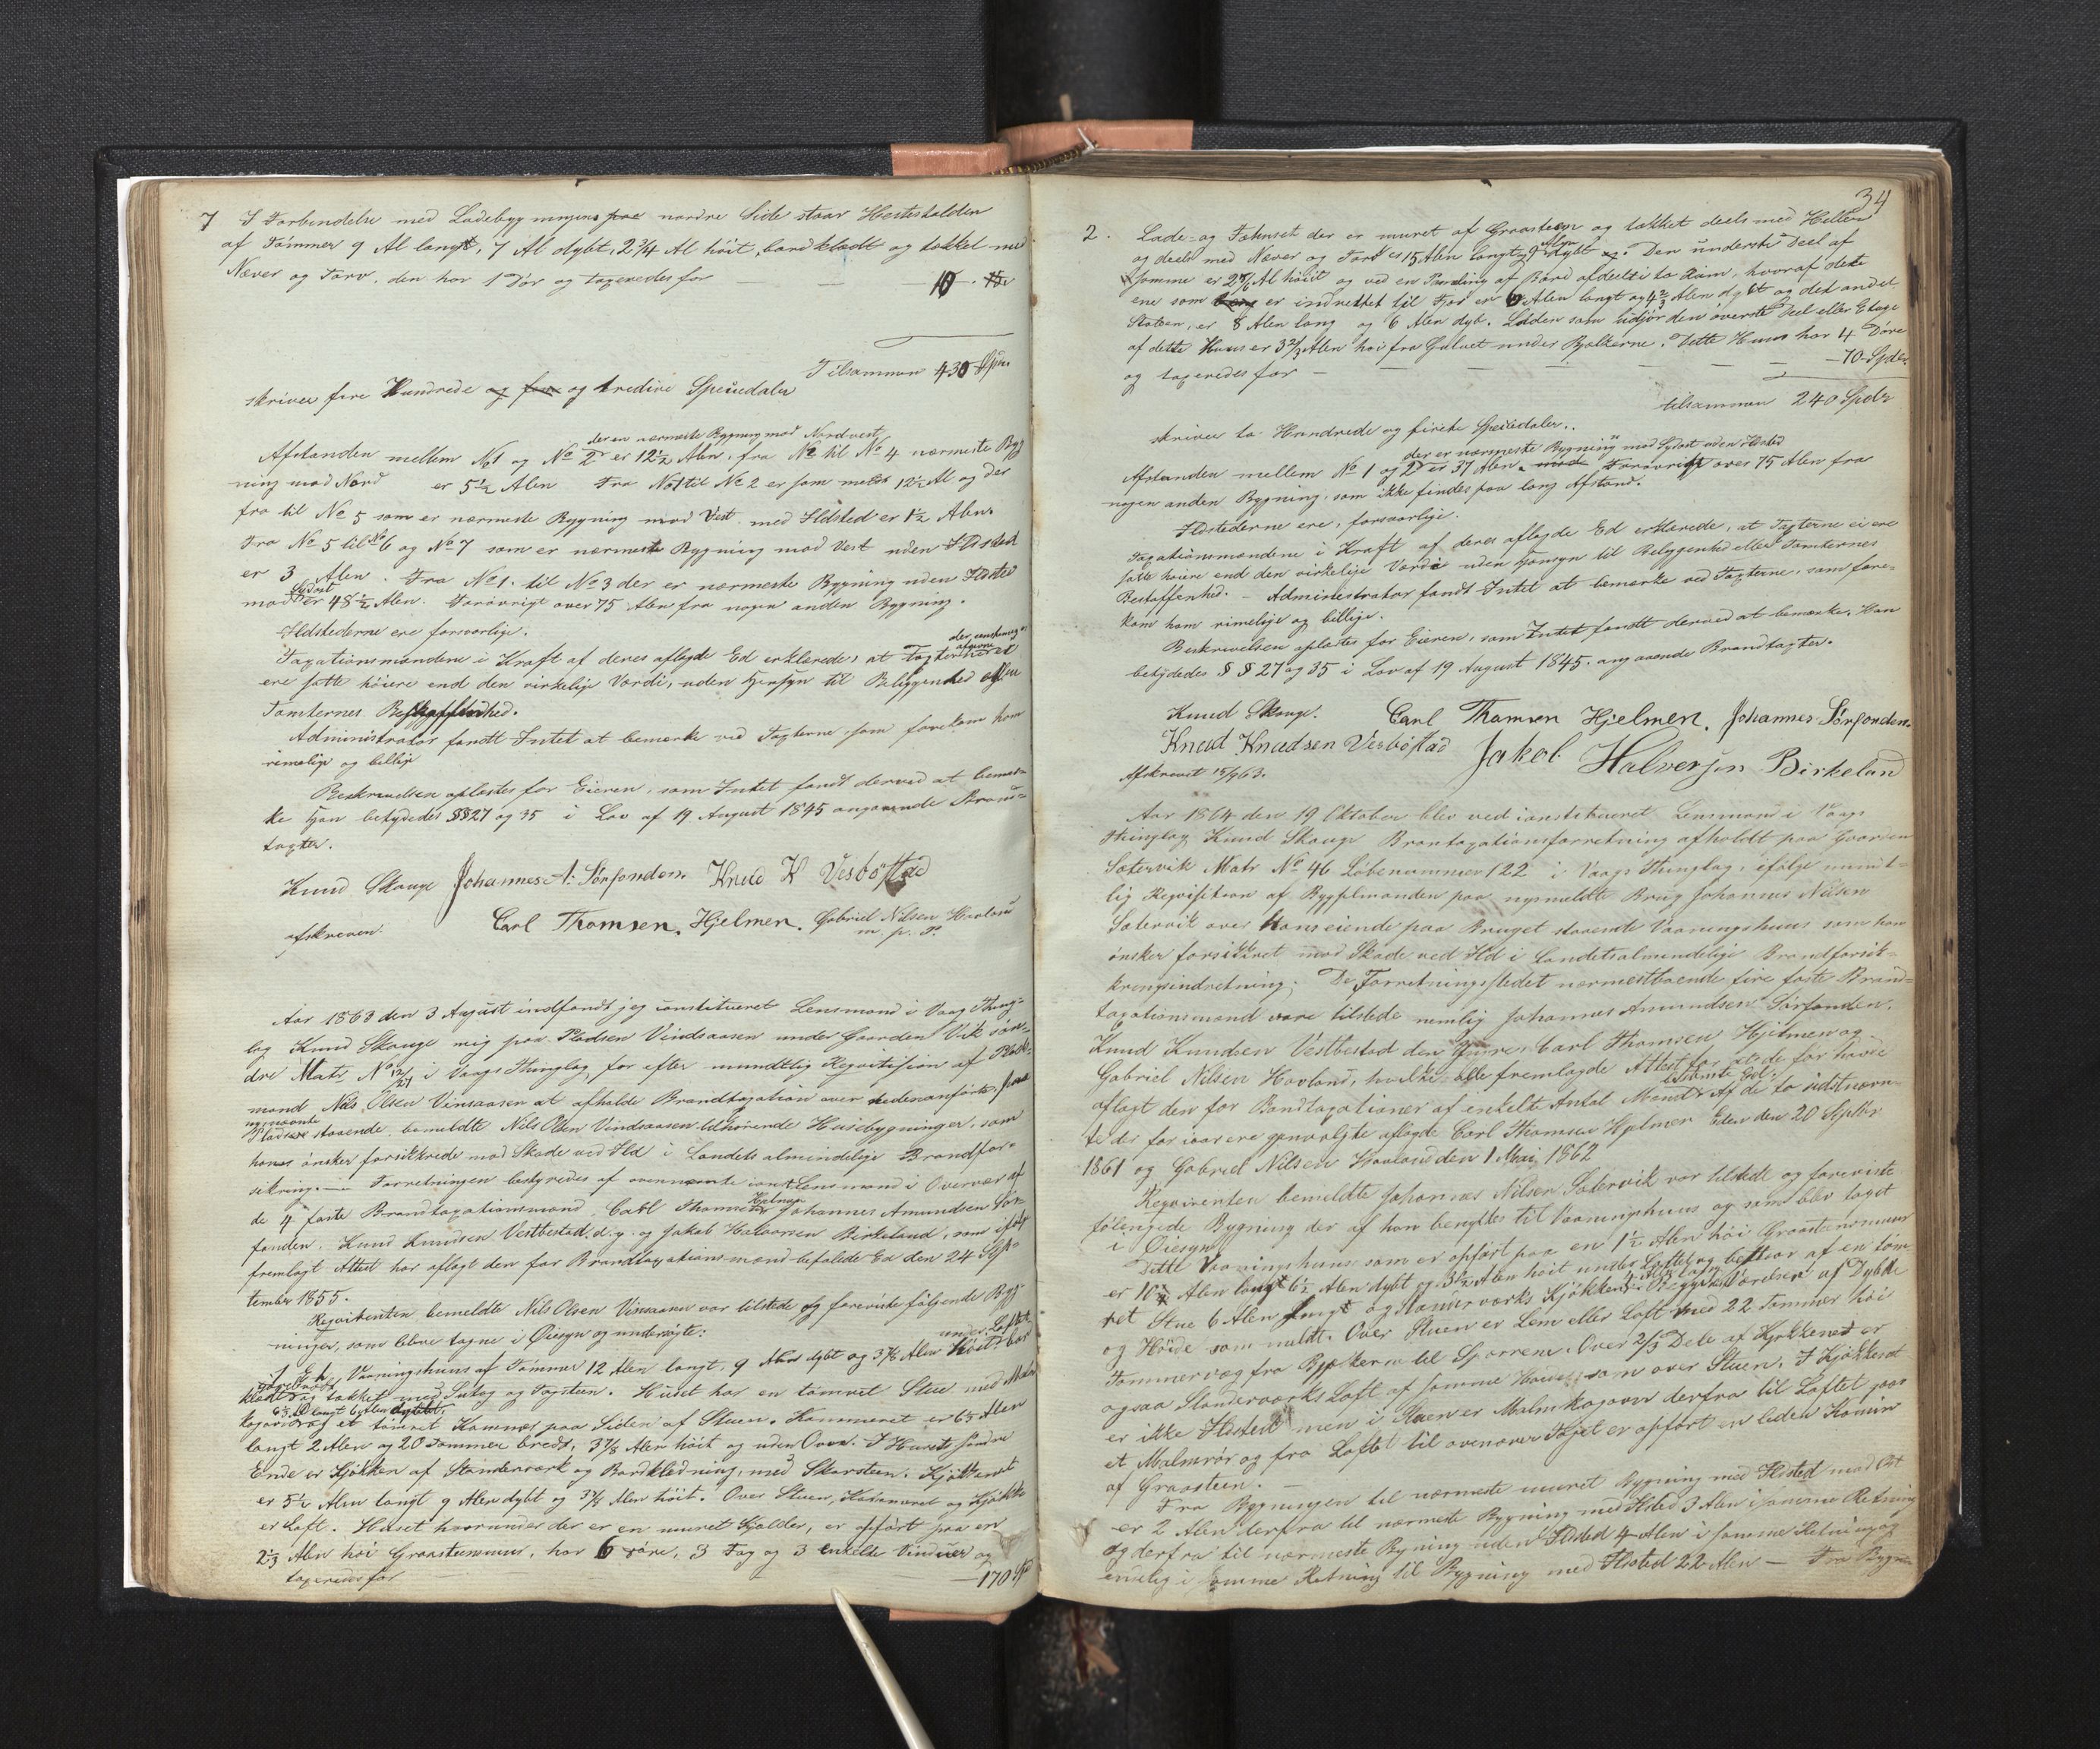 7 I Forbindelse med Ladebygningens paa nordre Side staar Hestestalden
af Tømmer 9 Al langt, 7 Al dybt, 2 3/4 Al høit, bordklædt og tækket med
Næver og Torv, den har 1 Dør og taxeredes for 10
Tilsammen 430 Spdr
skriver fire Hundrede og og tredive Speciedaler
der er nærmeste Bygning mod Nordvest
Afstanden mellem No 1 og No 2 er 12 1/2 Alen, fra No 2 til No 4 nærmeste Byg
ning mod Nord er 5 1/2 Alen Fra No 1 til No 2 er som meldt 12 1/2 Al og der
fra til No 5 som er nærmeste Bygning mod Vest med Ildsted er 1 1/2 Alen.
Fra No 5 til No 6 og No 7 som er nærmeste Bygning mod Vest uden Ildsted
er 3 Alen. Fra No 1. til No 3 der er nærmeste Bygning uden Ildsted
mod Sydost er 48 1/2 Alen. Forøvrigt over 75 Alen fra nogen anden Bygning.
Ildstederne ere forsvarlige.
Taxationsmændene i Kraft af deres aflagde Ed erklærede, at Taxterne
ere satte høiere end den virkelige Værdi, uden Hensyn til Beliggenhed eller
Tomternes Beskaffenhed.
Administrator fandt Intet at bemærke ved Taxterne, som forekom ham
rimelige og billige
Beskrivelsen oplæstes for Eieren, som Intet fandt derved at bemær=
ke Han betydedes §§ 27 og 35 i Lov af 19 August 1845 angaaende Brand=
taxter.
Knud Skauge Johannes A: Sørfonden. Knud K Vesbøstad
afskreven. Carl Thomsen, Hjelmen. Gabriel Nilsen Havland
m. p. P.
Aar 1863 den 3 August indfandt jeg constitueret Lensmand i Vaag Thing=
lag Knud Skauge mig paa Pladsen Vindsaasen under Gaarden Vik søn=
dre Matr No 12/27 i Vaags Thinglag, for efter mundtlig Reqvisition af Plads=
mand Nils Olsen Vinsaasen at afholde Brandtaxation over nedenanførte paa
nysnævnte
Pladsen staaende, bemeldte Nils Olsen Vindsaasen tilhørende Huusbygninger, som
haves ønsker forsikkrede mod Skade ved Ild i Landets almindelige Brandfor=
sikring. Forretningen bestyredes af ovennævnte const Lensmand i Overvær af
de 4 faste Brandtaxationsmænd, Carl Thomsen Hjelmen Johannes Amundsen Sør
fonden, Knud Knudsen Vestbøstad d. y. og Jakob Halvorsen Birkeland, som ifølge
fremlagt Attest har aflagt den for Brandtaxationsmænd befalede Ed den 24 Sep=
tember 1855.
Reqvirenten bemeldte Nils Olsen Vinsaasen var tilstede og foreviste følgende Byg=
ninger, som bleve tagne i Øiesyn og undersøgte:
under Loftet
1 Et Vaaningshuus af Tømmer 12 Alen langt, 9 Alen dybt og 3 7/8 Alen høit, bord
klædt og tækket med Sutag og Tagsteen. Huset har en tømret Stue med Malm
kagovn og et tømret Kammer paa Siden af Stuen. Kammeret er 6 1/2 Alen
langt 2 Alen og 20 Tommer bredt, 3 7/8 Alen høit og uden Ovn. I Husets søndre
Ende er Kjøkken af Stenderværk og Bordklædning, med Skorsteen. Kjøkkenet
er 5 1/2 Alen langt 9 Alen dybt og 3 7/8 Alen høit. Over Stuen, Kammeret og Kjøkke
er Loft. Huset hvorunder der er en muret Kjælder, er opført paa en
2 1/3 Alen høi Graasteensmuur, har 6 Døre, 3 Fag og 3 enkelte Vinduer og
taxeredes for 170 Spd
34
2. Lade- og Fæhuset der er muret af Graasteen og tækket deels med Heller
og deels med Næver og Torv er 15 Alen langt 9 Alen dybt og. Den underste Deel af
samme er 2 5/6 Al høit og ved en Paneling af Bord afdeelt i to Rum, hvoraf det
ene som er indrettet til Fjøs er 6 Alen langt og 4 2/3 Alen dybt og det andet
Stalden, er 8 Alen lang og 6 Alen dyb. Laden som udgjør den øverste Deel eller Etage
af dette Huus er 3 2/3 Alen høi fra Gulvet under Bjelkerne. Dette Huus har 4 Døre
og taxeredes for 70 Spdr
tilsammen 240 Spdr
skriver to Hundrede og firti Speciedaler.
der er nærmeste Bygning mod Sydost uden Ildsted
Afstanden mellem No 1 og 2 er 37 Alen. Forøvrigt over 75 Alen fra
nogen anden Bygning, som ikke findes paa lang Afstand.
Ildstederne ere, forsvarlige.
Taxationsmændene i Kraft af deres aflagde Ed erklærede, at Taxterne ei ere
satte høiere end den virkelige Værdi uden Hensyn til Beliggenhed eller Tomternes
Beskaffenhed. – Administrator fandt Intet at bemærke ved Taxterne, som fore=
kom ham rimelige og billige.
Beskrivelsen oplæstes for Eieren, som Intet fandt derved at bemærke. Han
betydedes §§ 27 og 35 i Lov af 19 August 1845 angaaende Brandtaxter.
Knud Skauge. Carl Thomsen Hjelmen. Johannes Sørfonden.
Knud Knudsen Vesbøstad Jakob Halversen Birkeland
Afskrevet 15/9 63.
Aar 1864 den 19 Oktober blev ved constitueret Lensmand i Vaags
Thinglag Knud Skauge Brantaxationsforretning afholdt paa Gaarden
Sætervik Matr No 46 Løbenummer 122 i Vaags Thinglag, ifølge mundt=
lig Reqvisition af Bygselmanden paa nysmeldte Brug Johannes Nilsen
Sætervik over hans eiende paa Bruget staaende Vaaningshuus som han
ønsker forsikkret mod Skade ved Ild i Landets almindelige Brandforsik=
kringsindretning. De Forretningsstedet nærmestboende fire faste Brand=
taxationsmænd vare tilstede nemlig Johannes Amundsen Sørfonden,
Knud Knudsen Vestbøstad den Yngre, Carl Thomsen Hjelmen og
Gabriel Nilsen Havland, hvilke alle fremlagde Attest for at de for havde
aflagt den for Bandtaxationer af enkelte Antal Mænd bestemte Ed. Af de to sidstnævn=
te der for iaar ere gjenvalgte aflagde Carl Thomsen Hjelmen Eden den 20 Septbr
1861 og Gabriel Nilsen Havland den 1 Mai 1862
Reqvirenten bemeldte Johannes Nilsen Sætervik var tilstede og foreviste
følgende Bygning der af ham benyttes til Vaaningshuus og som blev taget
i Øiesyn
Dette Vaaningshuus som er opført paa en 1 1/2 Alen høi Graasteensmuur
er 10 Alen langt 6 1/2 Alen dybt og 3 1/2 Alen høit under Loftet og bestaar af en tøm
ret Stue 6 Alen langt og Standerværks Kjøkken. Begge Værelser af Dybde
og Høide som meldt. Over Stuen er Lem eller Loft med 22 Tommer høi
Tømmervæg fra Bjelkerne til Sparrene. Over 2/3 Dele af Kjøkkenet er
ogsaa Standerværks Loft af samme Høide som over Stuen. I Kjøkkenet
er ikke Ildsted men i Stuen er Malmkagovn derfra til Loftet gaar
et Malmrør og fra Loftet til ovenover Taget er opført en liden Kamin
af Graasteen. –
Fra Bygningen til nærmeste muret Bygning med Ildsted mod Øst
er 2 Alen derfra til nærmeste Bygning med Ildsted 3 Alen i samme Retning
og derfra til nærmeste Bygning uden Ildsted 4 Alen i samme Retning og
endelig i samme Retning til Bygning med Ildsted 22 Alen – Fra Bygn